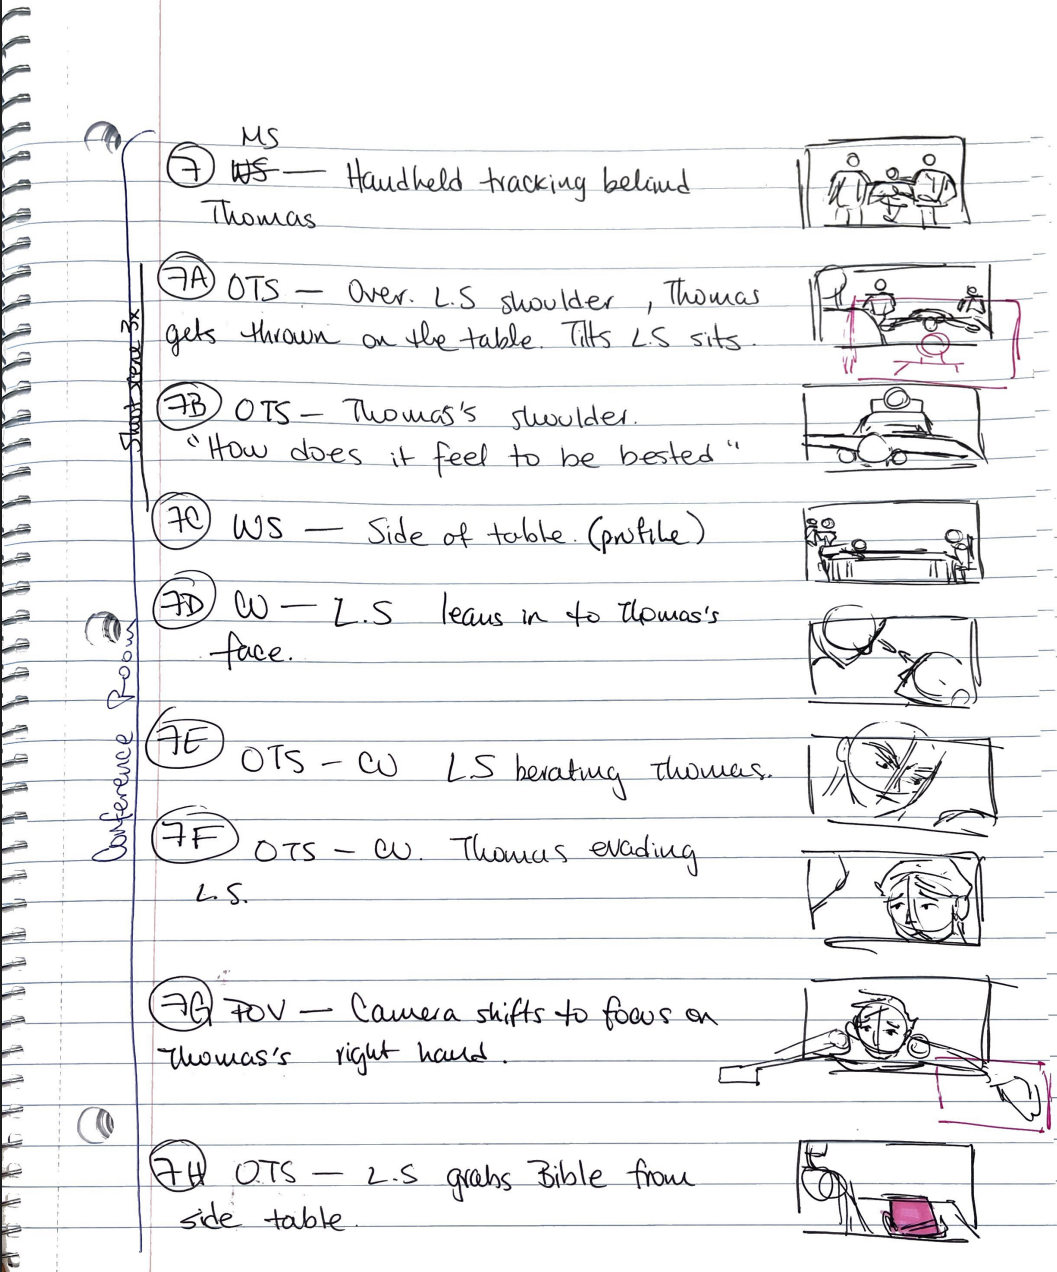 MS
7 WS — Handheld tracking behind
Thomas
7A OTS — Over. L.S shoulder, Thomas
gets thrown on the table. Tilts L.S sits.
7B OTS — Thomas's shoulder.
"How does it feel to be bested"
7C WS — Side of table. (profile)
7D CU — L.S leans in to Thomas's
face.
7E OTS — CU LS berating Thomas.
7F OTS — CU. Thomas evading
L.S.
7G POV — Camera shifts to focus on
Thomas's right hand.
7H OTS — L.S grabs Bible from
side table.
Shoot scene 3x
Conference Room